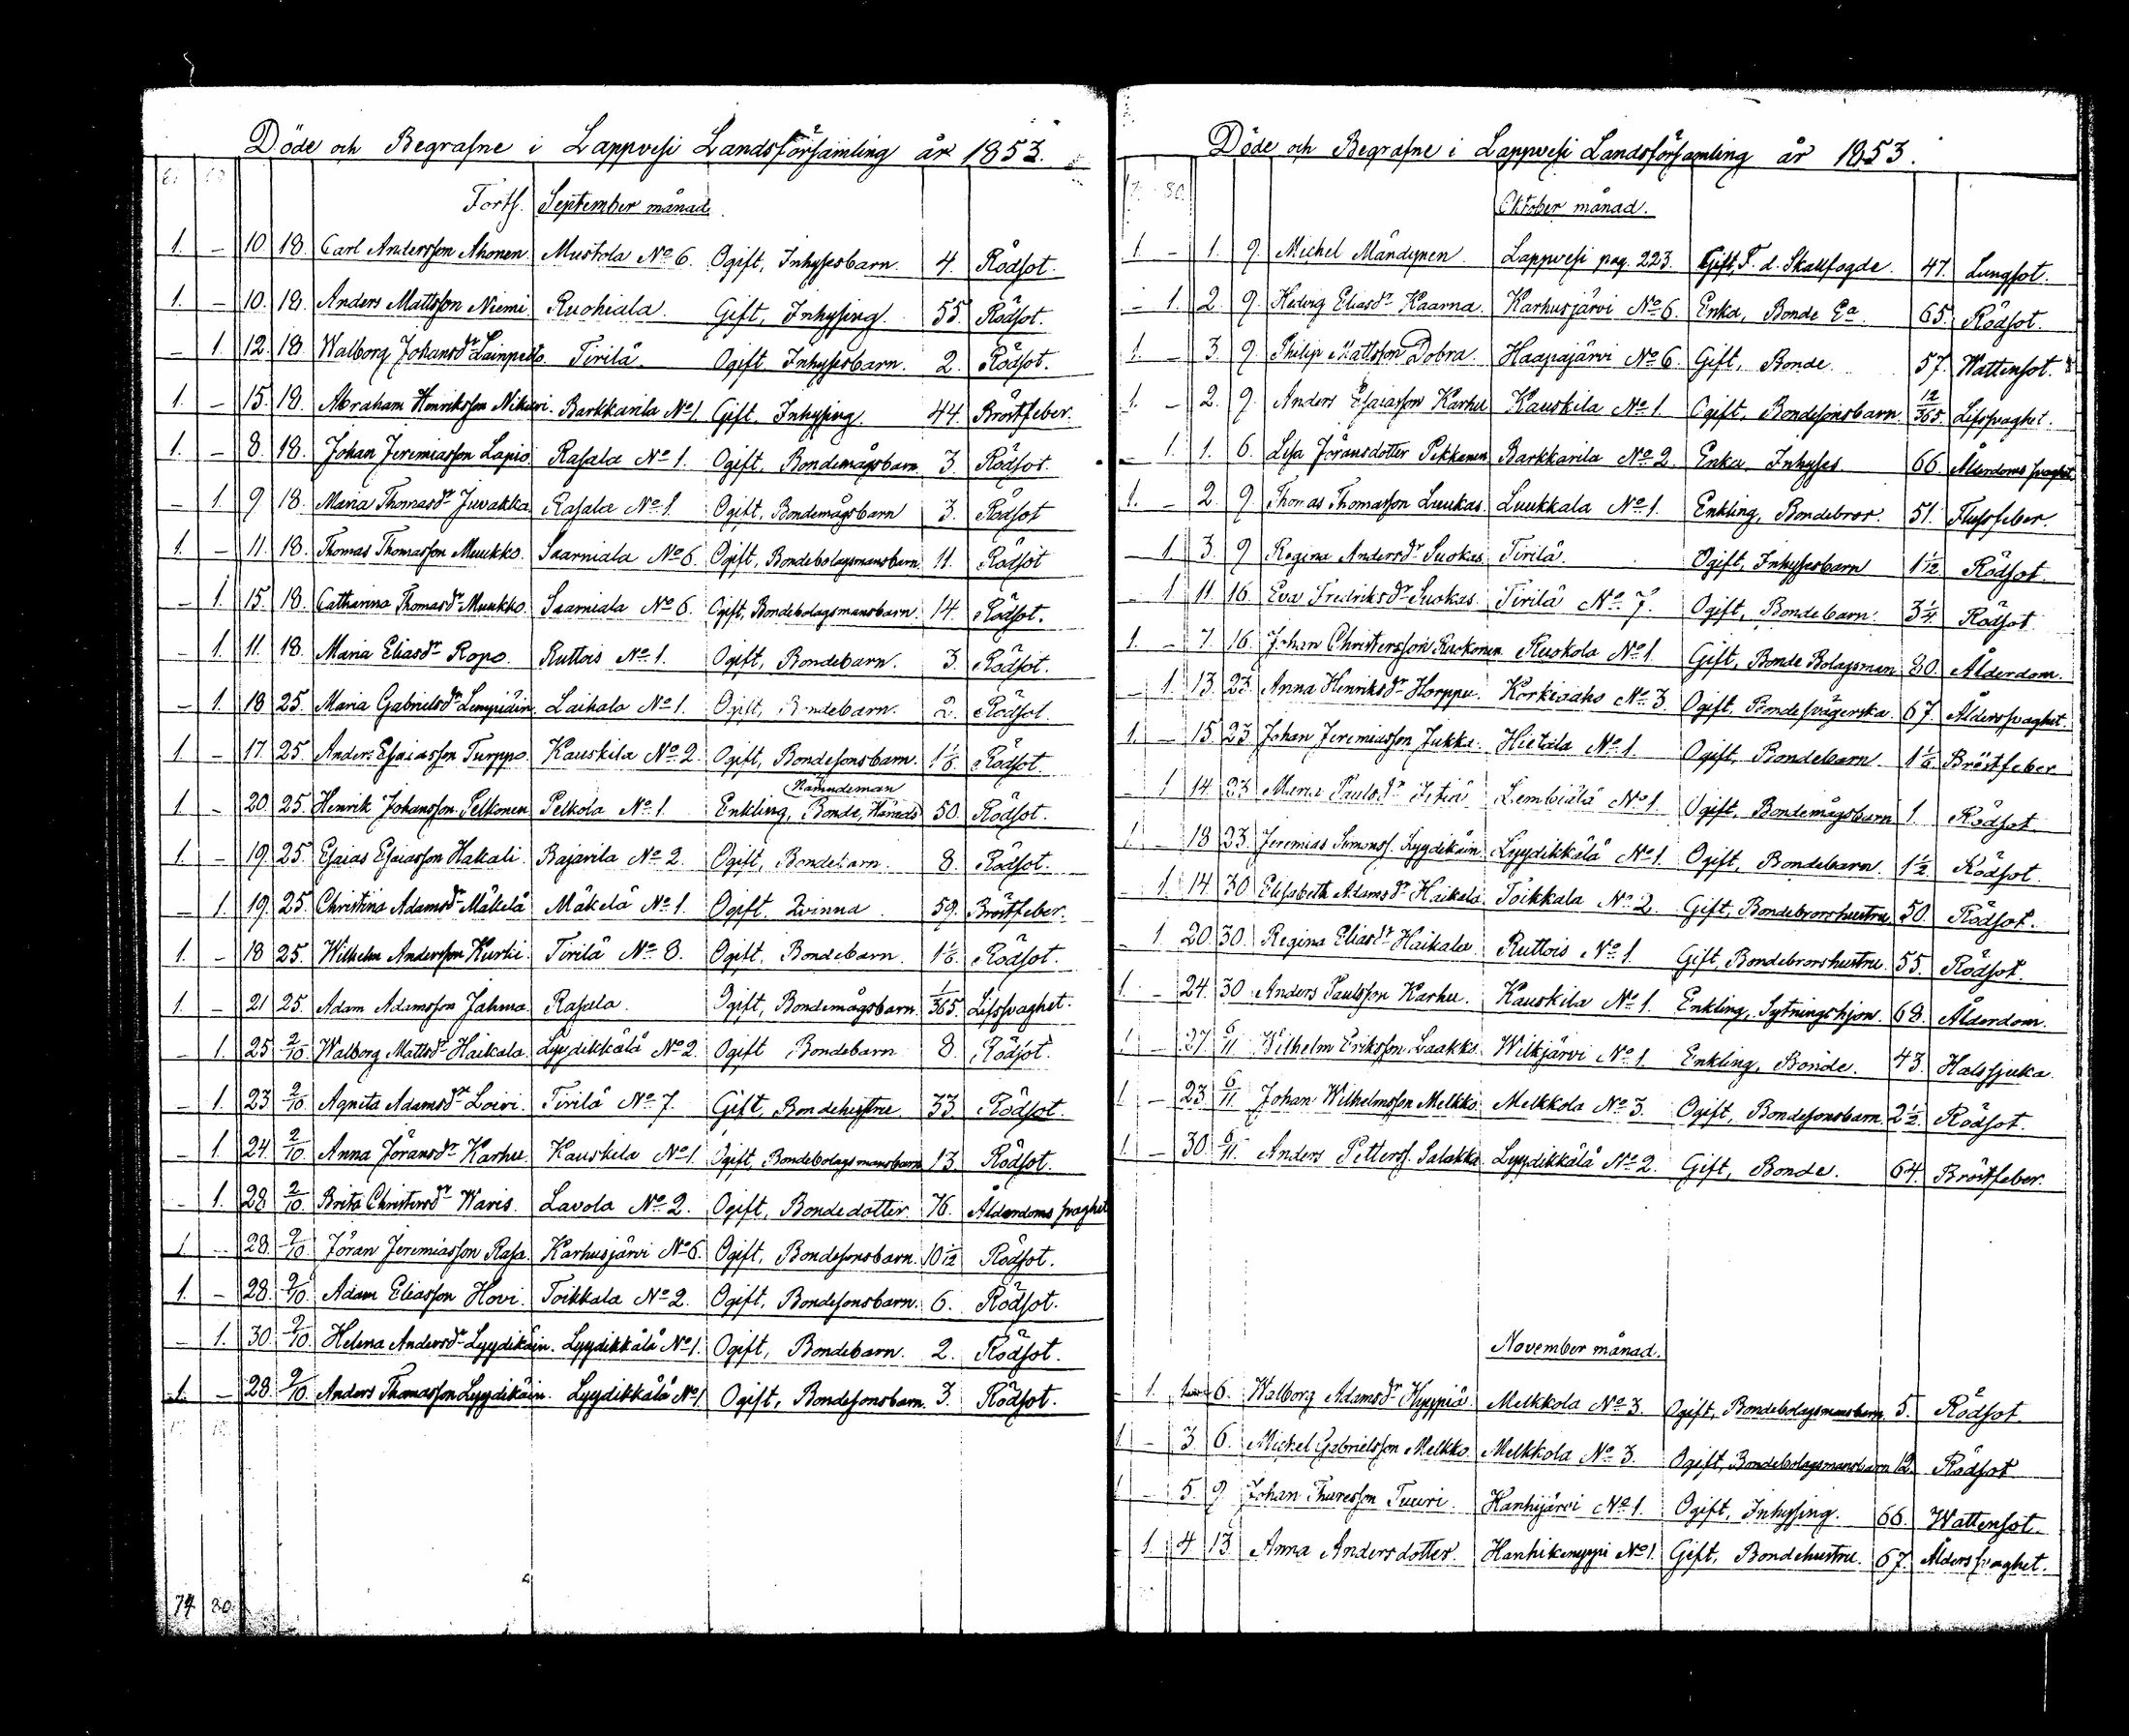 Döde och Begrafne i Lappvesi Landsförsamling år 1853.
Forts. September månad.
1. – 10. 18. Carl Andersson Ahonen. Mustola No 6. Ogift, Inhysesbarn. 4. Rödsot.
1. – 10. 18. Anders Mattsson Niemi. Ruohiala. Gift, Inhysing. 55. Rödsot.
– 1. 12. 18. Walborg Johansdr Lainpelto. Tirilä. Ogift Inhysesbarn. 2. Rödsot.
1. – 15. 18. Abraham Henriksson Nikari. Barkkarila No 1. Gift. Inhysing. 44. Bröstfeber.
1. – 8. 18. Johan Jeremiasson Lapio. Rasala No 1. Ogift, Bondemågsbarn. 3. Rödsot.
– 1. 9 18. Maria Thomasdr Juvakka. Rasala No 1. Ogift, Bondemågsbarn 3. Rödsot
1. – 11. 18. Thomas Thomasson Muukko. Saarniala No 6. Ogift, Bondebolagsmansbarn. 11. Rödsot
– 1. 15. 18. Catharina Thomasdr Muukko. Saarniala No 6. Ogift, Bondebolagsmansbarn. 14. Rödsot.
– 1. 11. 18. Maria Eliasdr Ropo. Ruttois No 1. Ogift, Bondebarn. 3. Rödsot.
– 1. 18 25. Maria Gabrielsdr Lempiäin. Laihala No 1. Ogift, Bondebarn. 2. Rödsot.
1. – 17. 25. Anders Esaiasson Turppo. Kauskila No 2. Ogift, Bondesonsbarn. 1 1/6. Rödsot.
1. – 20. 25. Henrik Johansson Pelkonen. Pelkola No 1. Enkling, Bonde, Härads Nämndeman 50. Rödsot.
1. – 19. 25. Esaias Esaiasson Hakali. Rajavila No 2. Ogift, Bondebarn. 8. Rödsot.
– 1. 19. 25. Christina Adamsdr Mäkelä. Mäkelä No 1. Ogift. Qvinna. 59. Bröstfeber.
1. – 18 25. Wilhelm Andersson Kurki. Tirilä No 8. Ogift, Bondebarn. 1 1/6. Rödsot.
1. – 21 25. Adam Adamsson Jahma. Rasala. Ogift, Bondemågsbarn. 1/365. Lifssvaghet.
– 1. 25 2/10. Walborg Mattsdr Haikala. Lyydikkälä No 2. Ogift Bondebarn 8. Rödsot.
– 1. 23 2/10. Agneta Adamsdr Loivi. Tirilä No 7. Gift, Bondehustru 33. Rödsot.
– 1. 24. 2/10. Anna Jöransdr Karhu. Kauskila No 1. Ogift, Bondebolagsmansbarn 13. Rödsot.
– 1. 28 2/10. Brita Christersdr Waris. Lavola No 2. Ogift, Bondedotter. 76. Ålderdoms svaghet
1. – 28. 2/10. Jöran Jeremiasson Rasa. Karhusjärvi No 6. Ogift, Bondesonsbarn. 10 1/12 Rödsot.
1. – 28. 2/10. Adam Eliasson Hovi. Toikkala No 2. Ogift, Bondesonsbarn. 6. Rödsot.
– 1. 30. 2/10. Helena Andersdr Lyydikäin. Lyydikkälä No 1. Ogift, Bondebarn. 2. Rödsot.
1. – 28. 2/10. Anders Thomasson Lyydikäin. Lyydikkälä No 1. Ogift, Bondesonsbarn. 3. Rödsot.
74 80
Döde och Begrafne i Lappvesi Landsförsamling år 1853.
Oktober månad.
1. – 1. 9. Michel Mändynen. Lappvesi pag. 223. Gift, F. d. Skallfogde. 47. Lungsot.
– 1. 2. 9. Hedvig Eliasdr Kaarna. Karhusjärvi No 6. Enka, Bonde Ea. 65. Rödsot.
1. – 3. 9. Philip Mattsson Dobra. Haapajärvi No 6. Gift, Bonde. 57. Wattensot.
1. – 2. 9. Anders Esaiasson Karhu. Kauskila No 1. Ogift, Bondesonsbarn. 12/365. Lifssvaghet.
– 1. 1. 6. Lisa Jöransdotter Pekkanen. Barkkarila No 2. Enka, Inhyses 66. Ålderdoms svaghet
1. – 2. 9. Thomas Thomasson Luukas. Luukkala No 1. Enkling, Bondebror. 51. Flussfeber.
– 1. 3. 9 Regina Andersdr Suokas. Tirilä. Ogift, Inhysesbarn 1 1/12 Rödsot.
– 1 11. 16. Eva Fredriksdr Suokas. Tirilä No 7. Ogift, Bondebarn. 3 1/4. Rödsot.
1. – 7. 16. Johan Christersson Ruokonen Ruokola No 1. Gift, Bonde Bolagsman 80. Ålderdom.
– 1. 13. 23. Anna Henriksdr Horppu. Korkiaaho No 3. Ogift, Bondesvägerska. 67. Ålderssvaghet.
1. – 15. 23 Johan Jeremiasson Jukka. Hietala No 1. Ogift, Bondebarn. 1 1/6. Bröstfeber
– 1 14. 23 Maria Paulsdr Itiä Lembiälä No 1. Ogift, Bondemågsbarn 1. Rödsot.
1. – 18 23. Jeremias Simonss. Lyydikäin. Lyydikkälä No 1. Ogift, Bondebarn. 1 1/2. Rödsot.
– 1. 14. 30 Elisabeth Adamsdr Haikala. Toikkala No 2. Gift, Bondebrorshustru. 50. Rödsot.
– 1. 20. 30. Regina Eliasdr Haikala. Ruttois No 1. Gift, Bondebrorshustru. 55. Rödsot.
1. – 24. 30 Anders Paulsson Karhu. Kauskila No 1. Enkling, Sytningshjon. 68. Ålderdom.
1. – 27. 6/11 Wilhelm Eriksson Laakko. Wilkjärvi No 1. Enkling, Bonde. 43. Halssjuka.
1 – 23. 6/11. Johan Wilhelmsson Melkko. Melkkola No 3. Ogift, Bondesonsbarn. 2 1/2. Rödsot.
1. – 30. 6/11. Anders Petterss. Salakka. Lyydikkälä No 2. Gift, Bonde. 64. Bröstfeber.
November månad.
– 1. 1 6. Walborg Adamsdr Hyyppiä. Melkkola No 3. Ogift, Bondebolagsmansbarn. 5. Rödsot
1 – 3. 6. Michel Gabrielsson Melkko. Melkkola No 3. Ogift, Bondebolagsmansbarn 12. Rödsot
1 – 5. 9. Johan Thuresson Tuuri. Hanhijärvi No 1. Ogift, Inhysing. 66. Wattensot.
– 1. 4. 13 Anna Andersdotter. Hanhikemppi No 1. Gift, Bondehustru. 67. Ålderssvaghet.